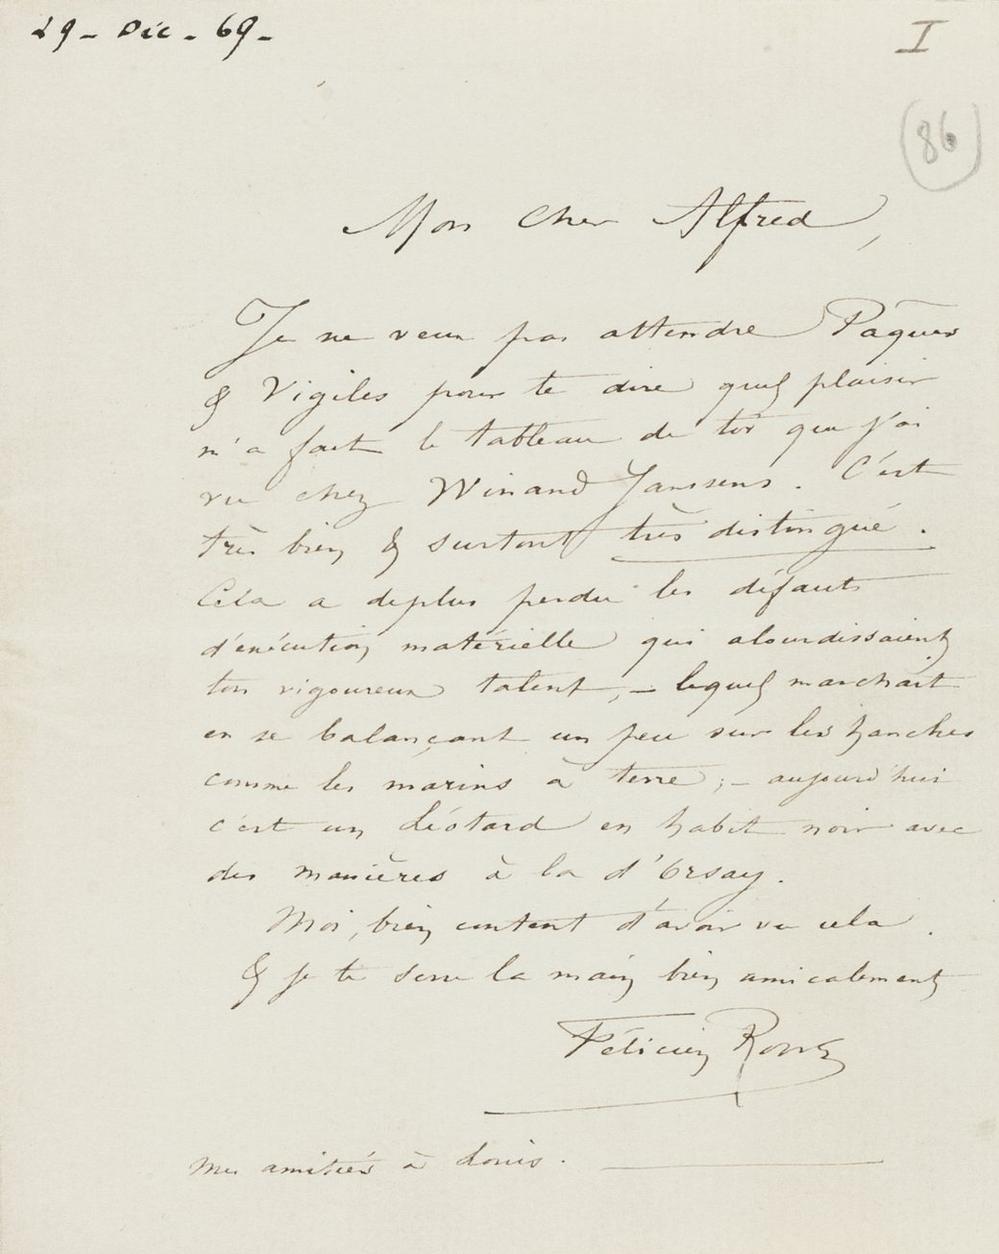 29 - Déc - 69 -
I
(86)
Mon cher Alfred,
Je ne veux pas attendre Pâques
& Vigiles pour te dire quel plaisir
m'a fait le tableau de toi que j'ai
vu chez Winand Janssens. C'est
très bien & surtout très distingué.
Cela a deplus perdu les défauts
d'exécution matérielle qui alourdissaient
ton vigoureux talent, - lequel marchait
en se balançant un peu sur les hanches
comme les marins à terre ; - aujourd'hui
c'est un Léotard en habit noir avec
des manières à la d'Orsay.
Moi, bien content d'avoir vu cela.
& je te serre la main bien amicalement
Félicien Rops
Mes amitiés à Louis.